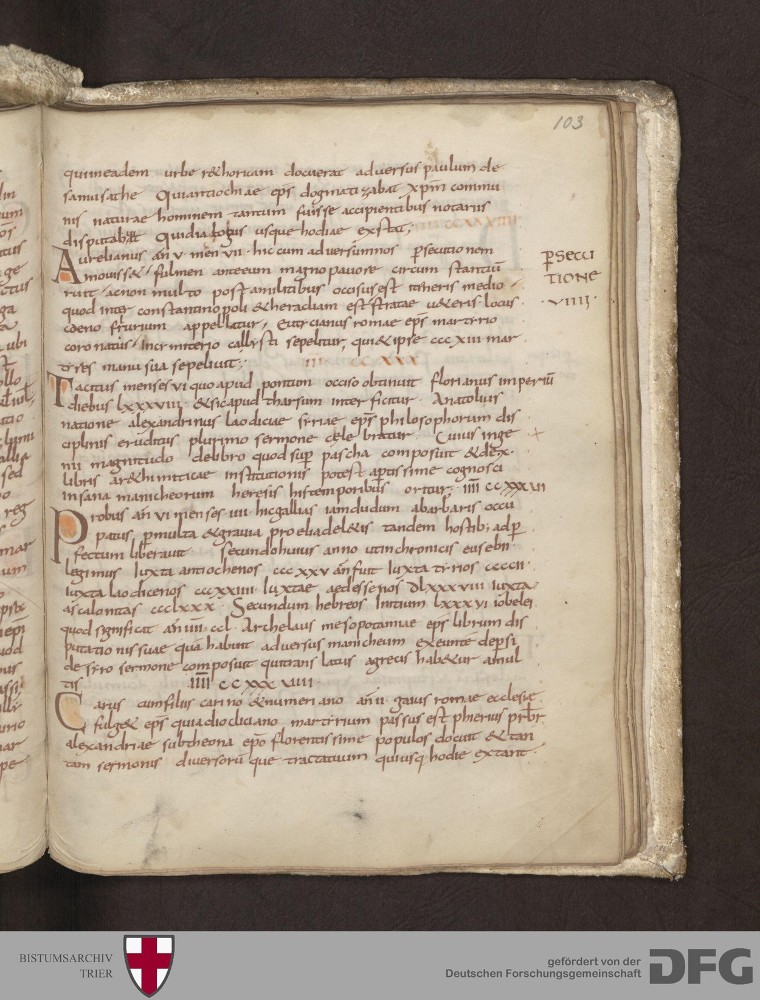 103
quineadem urbe rethoricam docuerat adversus paulum de
samusathe Quiantiochiae eps dogmatizabat xpm commu
nis naturae hominem tantum fuisse accipientibus notariis
disputabat Quidialogus usque hodie exstat;
Aurelianus an v men vii hic cum adversum nos persecutionem
movisset fulmen ante eum magno pavore circum stantiu
ruit ac non multo post amilitibus occisus est itineris medio
quod inter constantinopoli &heracliam est stratae veteris locus
coeno frurium appellatur Eutycianus romae eps martyrio
coronatus In cimiterio callysti sepelitur, qui&ipse cccxiii mar
tyres manu sua sepelivit; IIII CC XXX
pSECU
TIONE
VIIII
Tacitus menses vi quo apud pontum occiso obtinuit florianus imperiu
diebus lxxxviii &sicapud tharsum interficitur Anatolius
natione alexandrinus laodiciae syriae eps philosophorum dis
ciplinis eruditus plurimo sermone celebratur Cuius inge
nii magnitudo delibro quod sup pascha composuit &dex
libris arithmiticae institutionis potest aptissime cognosci
Insana manicheorum heresis histemporibus oritur; IIII CC XXX VII
Probus an vi menses iiii hic gallias iamdudum abarbaris occu
patas, p multa &gravia proelia deletis tandem hostib; ad p
fectum liberavit secundo huius anno ut in chronicis eusebii
legimus Iuxta antiochenos cccxxv an fuit Iuxta tyrios ccccii
Iuxta laodicenos cccxxiiii Iuxtae aedessenos dlxxxviii Iuxta
ascalonitas ccclxxx Secundum hebreos Initium lxxxvi iobelei
quod significat an iiii ccl Archelaus mesopotamiae eps librum dis
putationis suae qua habuit adversus manicheum exeunte de psi
de syro sermone composuit qui translatus agrecis habetur a mul
tis IIII CC XXX VIIII
Carus cum filiis carino &numeriano an ii gaius romae ecclesie
fulget eps quia diocliciano martyrium passus est phierius prbr
alexandriae sub theona epo florentissime populos docuit &tan
tam sermonis diversorum que tractatuum quiusq hodie extant
BISTUMSARCHIV
TRIER
gefördert von der
Deutschen Forschungsgemeinschaft
DFG